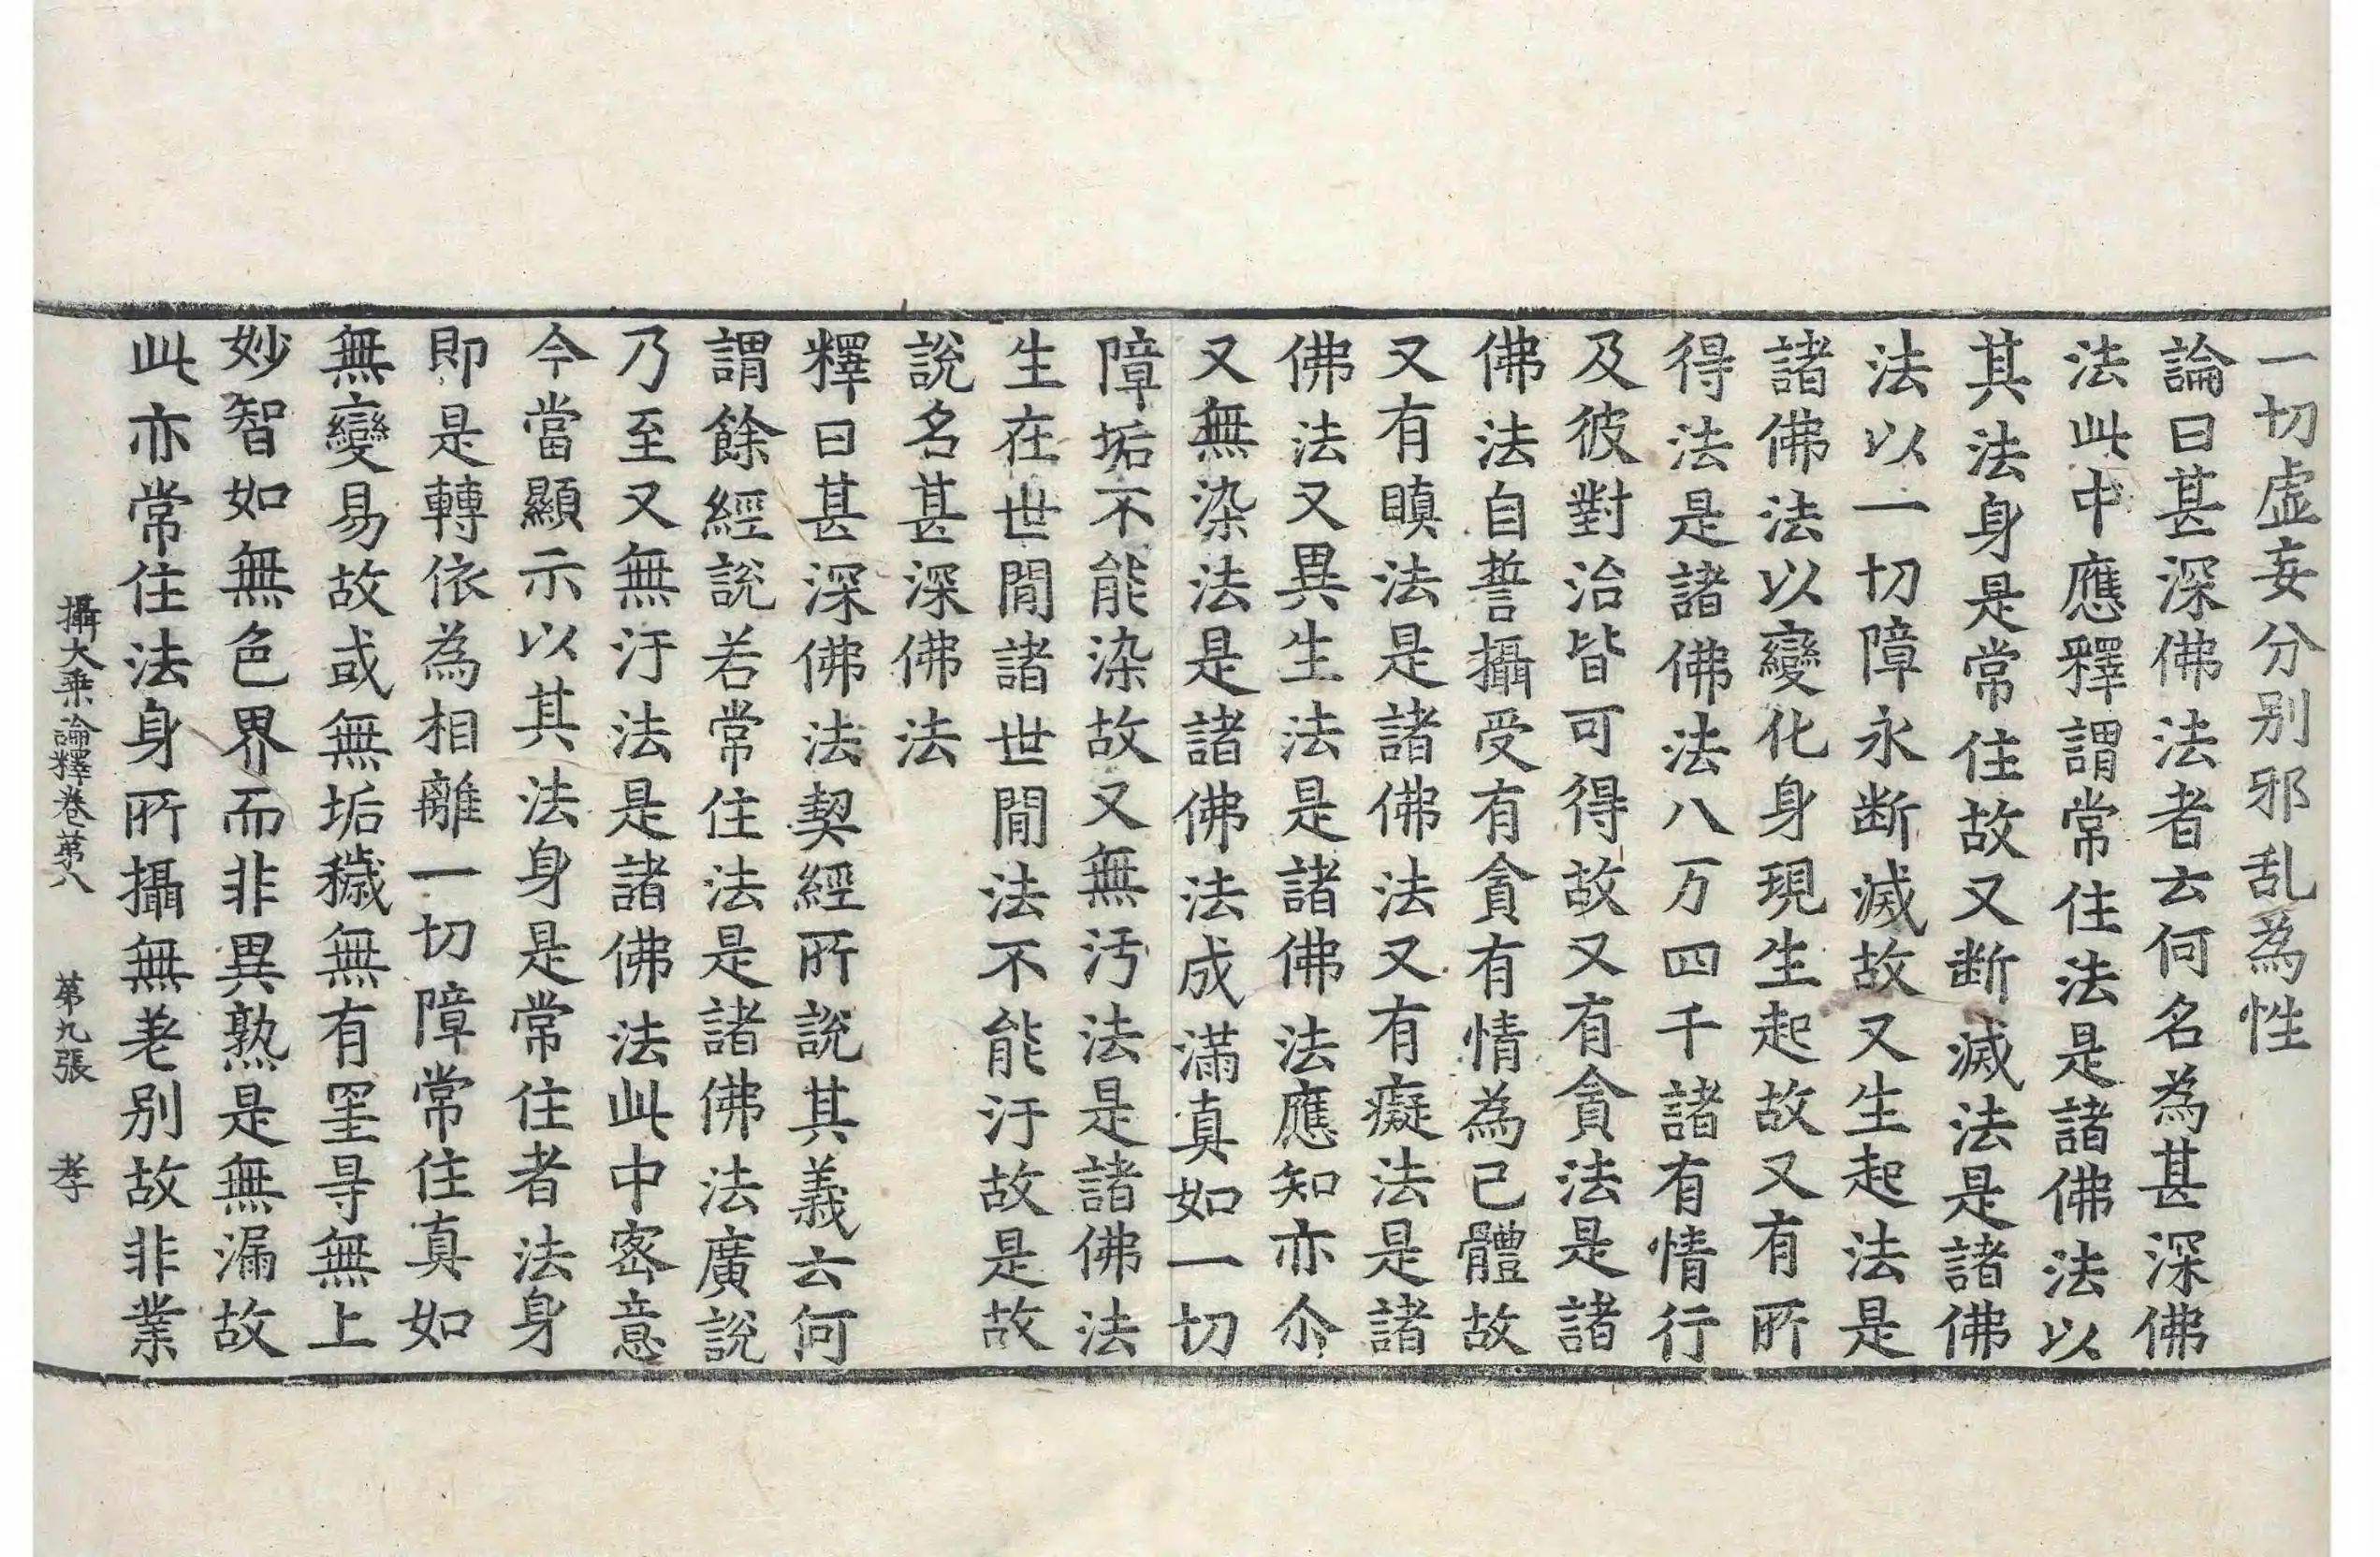 一切虛妄分别邪乱為性
論曰甚深佛法者云何名為甚深佛
法此中應釋謂常住法是諸佛法以
其法身是常住故又断滅法是諸佛
法以一切障永断滅故又生起法是
諸佛法以變化身現生起故又有所
得法是諸佛法八万四千諸有情行
及彼對治皆可得故又有貪法是諸
佛法自誓攝受有貪有情為己體故
又有瞋法是諸佛法又有癡法是諸
佛法又異生法是諸佛法應知亦尒
又無染法是諸佛法成滿真如一切
障垢不能染故又無汚法是諸佛法
生在世間諸世間法不能汙故是故
說名甚深佛法
釋曰甚深佛法契經所說其義云何
謂餘經說若常住法是諸佛法廣說
乃至又無汙法是諸佛法此中密意
今當顯示以其法身是常住者法身
即是轉依為相離一切障常住真如
無變易故或無垢穢無有罣㝵無上
妙智如無色界而非異熟是無漏故
此亦常住法身所攝無差别故非業
攝大乗論釋卷苐八　苐九張　孝